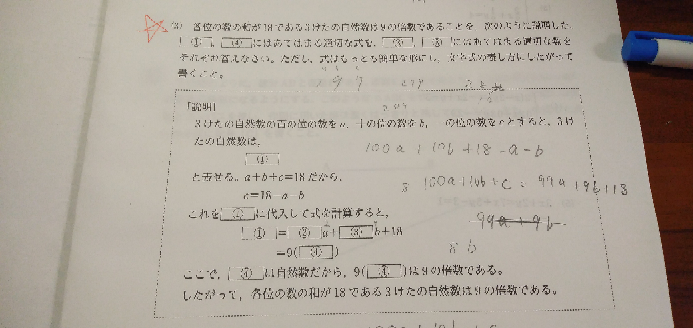 各位の数の和が18である3けたの自然数は9の倍数であることを、次のように説明した。
①、④にあてはまる適切な式を、②、③にあてはまる適切な数を
それぞれ答えなさい。ただし、式はもっとも簡単な形にし、文字式の表し方にしたがって
書くこと。
299
279
[説明]
3けたの自然数の百の位の数をa、十の位の数をb、一の位の数をcとすると、3け
たの自然数は、
①
100a+10b+18-a-b
と表せる。a+b+c=18だから、
100a+10b+c = 99a+9b+18
c=18-a-b
これを①に代入して式を計算すると、
①=②a+③b+18
99a+9b
=9(④)
ここで、④は自然数だから、9(④)は9の倍数である。
したがって、各位の数の和が18である3けたの自然数は9の倍数である。